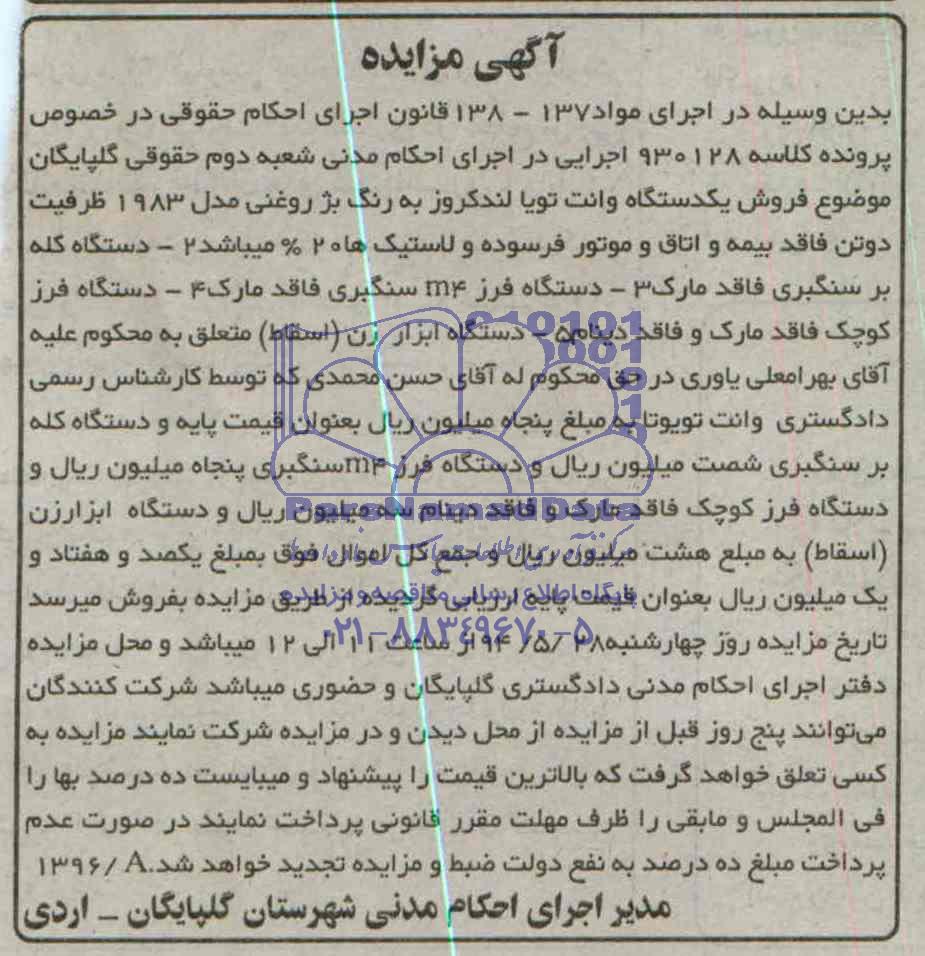 آگهی مزایده
بدین وسیله در اجرای مواد۱۳۷ - ۱۳۸قانون اجرای احکام حقوقی در خصوص
پرونده کلاسه ۹۳۰۱۲۸ اجرایی در اجرای احکام مدنی شعبه دوم حقوقی گلپایگان
موضوع فروش یکدستگاه وانت تویا لندکروز به رنگ بژ روغنی مدل ۱۹۸۳ ظرفیت
دوتن فاقد بیمه و اتاق و موتور فرسوده و لاستیک ها۲۰ % میباشد۲ - دستگاه کله
بر سنگبری فاقد مارک۳ - دستگاه فرز m۴ سنگبری فاقد مارک۴ - دستگاه فرز
کوچک فاقد مارک و فاقد دینام۵ - دستگاه ابزار زن (اسقاط) متعلق به محکوم علیه
آقای بهرامعلی یاوری در حق محکوم له آقای حسن محمدی که توسط کارشناس رسمی
دادگستری وانت تویوتا به مبلغ پنجاه میلیون ریال بعنوان قیمت پایه و دستگاه کله
بر سنگبری شصت میلیون ریال و دستگاه فرز m۴سنگبری پنجاه میلیون ریال و
دستگاه فرز کوچک فاقد مارک و فاقد دینام سه میلیون ریال و دستگاه ابزارزن
(اسقاط) به مبلغ هشت میلیون ریال و جمع کل اموال فوق بمبلغ یکصد و هفتاد و
یک میلیون ریال بعنوان قیمت پایه ارزیابی گردیده از طریق مزایده بفروش میرسد
تاریخ مزایده روز چهارشنبه۹۴/۵/۲۸از ساعت ۱۱ الی ۱۲ میباشد و محل مزایده
دفتر اجرای احکام مدنی دادگستری گلپایگان و حضوری میباشد شرکت کنندگان
می‌توانند پنج روز قبل از مزایده از محل دیدن و در مزایده شرکت نمایند مزایده به
کسی تعلق خواهد گرفت که بالاترین قیمت را پیشنهاد و میبایست ده درصد بها را
فی المجلس و مابقی را ظرف مهلت مقرر قانونی پرداخت نمایند در صورت عدم
پرداخت مبلغ ده درصد به نفع دولت ضبط و مزایده تجدید خواهد شد.۱۳۹۶/A
مدیر اجرای احکام مدنی شهرستان گلپایگان - اردی
ParsNamadData
پایگاه اطلاع رسانی مناقصه و مزایده
۰۲۱-۸۸۳۴۹۶۷۰-۵